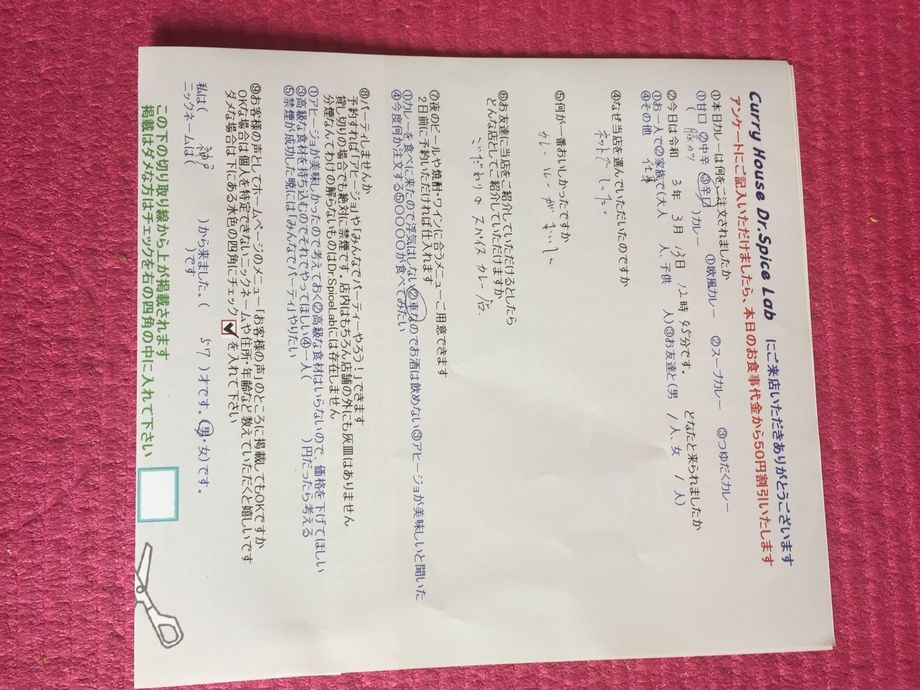 Curry House Dr.Spice Lab にご来店いただきありがとうございます
アンケートにご記入いただけましたら、本日のお食事代金から50円割引いたします
①本日カレーは何をご注文されましたか
( )カレー ①欧風カレー ②スープカレー ③つゆだくカレー
①甘口 ②中辛 ③辛口
②今日は令和 3年 3月 13日 12時 45分です。 どなたと来られましたか
①お一人で②家族で(大人 人、子供 人)③お友達と(男 1人、女 1人)
④その他 仕事
④なぜ当店を選んでいただいたのですか
ネットでしった。
⑤何が一番おいしかったですか
カレー
⑥お友達に当店をご紹介していただけるとしたら
どんな店としてご紹介していただけますか
こだわりのスパイスカレー店
⑦夜のビールや焼酎・ワインに合うメニューご用意できます
2日前に予約いただければ仕入れます
①カレーを食べに来たので浮気はしない②車なのでお酒は飲めない③アヒージョが美味しいと聞いた
④今度何か注文する⑤○○○○が食べてみたい
⑧パーティしませんか
予約すれば「アヒージョ」や「みんなでパーティーやろう!」できます
貸し切りの場合でも絶対に禁煙です。店内はもちろん店舗の外にも灰皿はありません
分煙なんてわけの解らないものはDr.SpiceLabには存在しません
①アヒージョが美味しかったので考えておく②高級な食材はいらないので、価格を下げてほしい
③高級な食材を持ち込むのでそれでやってほしい④一人( )円だったら考える
⑤禁煙が成功した暁には「みんなでパーティ」やりたい
⑨お客様の声としてホームページのメニュー「お客様の声」のところに掲載してもOKですか
OKな場合は個人を特定できないニックネームや住所・年齢など教えていただくと嬉しいです
ダメな場合は下にある水色の四角にチェック☑を入れて下さい
私は( 神戸 )から来ました。( 57 )才です。(男・女)です。
ニックネームは( )です
この下の切り取り線から上が掲載されます
掲載はダメな方はチェックを右の四角の中に入れて下さい